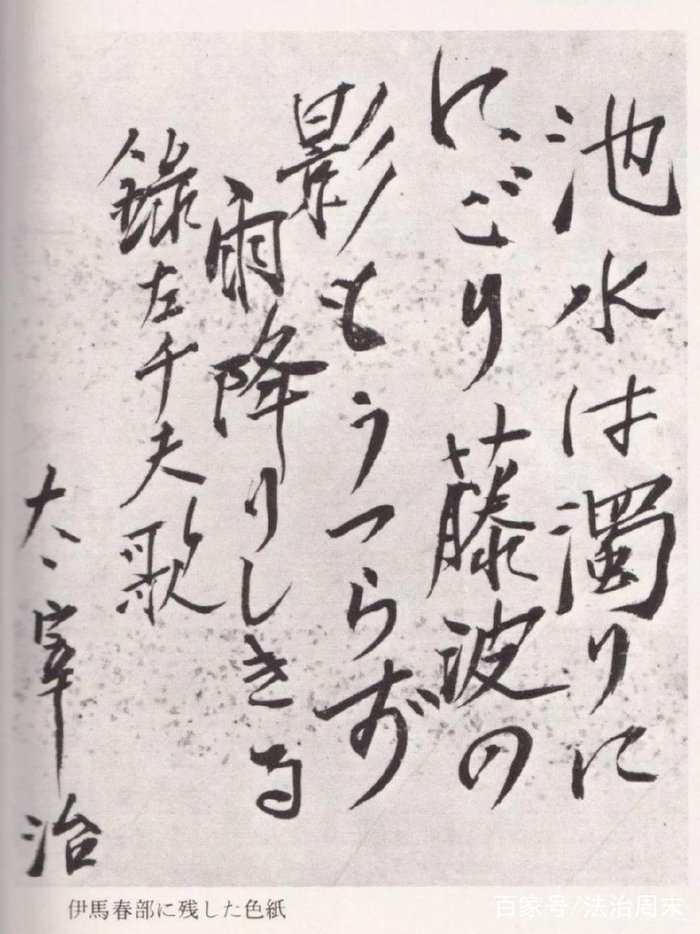 池水は濁りに
にごり藤波の
影もうつらず
雨降りしきる
録左千夫歌
太宰治
伊馬春部に残した色紙
百家号/法治周末